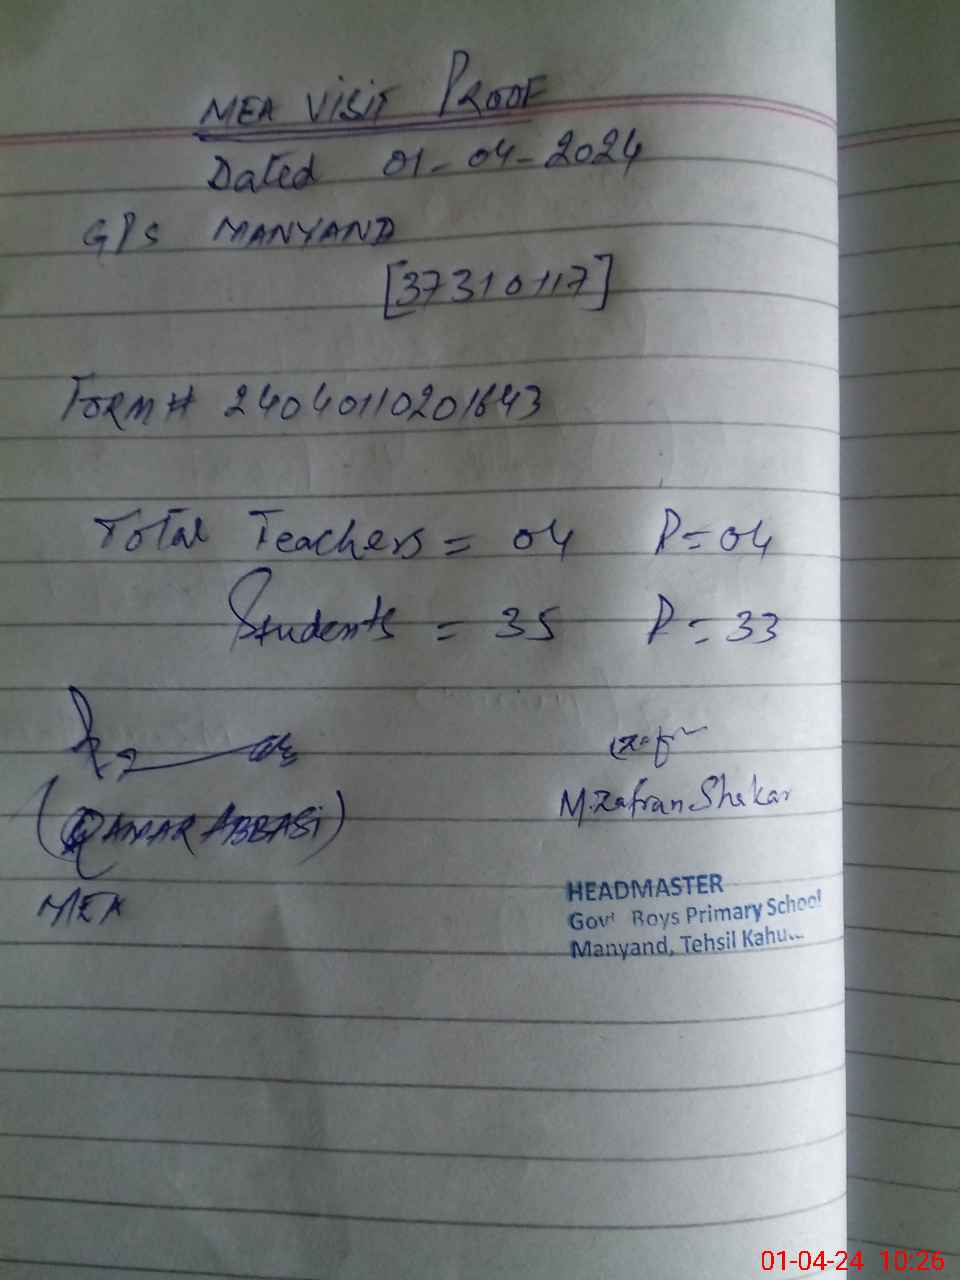 MEA VISIT PROOF
Dated 01-04-2024
GPS MANYAND
[37310117]
FORM# 24040110201643
Total Teachers = 04 P=04
Students = 35 P=33
M.Zafran Shakar
(QAMAR ABBASI)
MEA
HEADMASTER
Govt Boys Primary School
Manyand, Tehsil
01-04-24 10:26